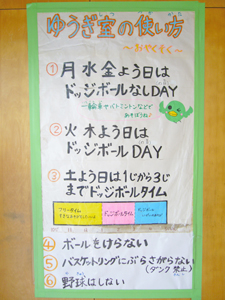 ゆうぎ室の使い方
～おやくそく～
① 月水金よう日は
ドッジボールなしDAY
一輪車やバトミントンなどで
あそぼうね!
② 火木よう日は
ドッジボールDAY
③ 土よう日は1じから3じ
までドッジボールタイム
フリータイム
ドッジボールタイム
④ ボールをけらない
⑤ バスケットリングにぶらさがらない
(ダンク禁止)
⑥ 野球はしない